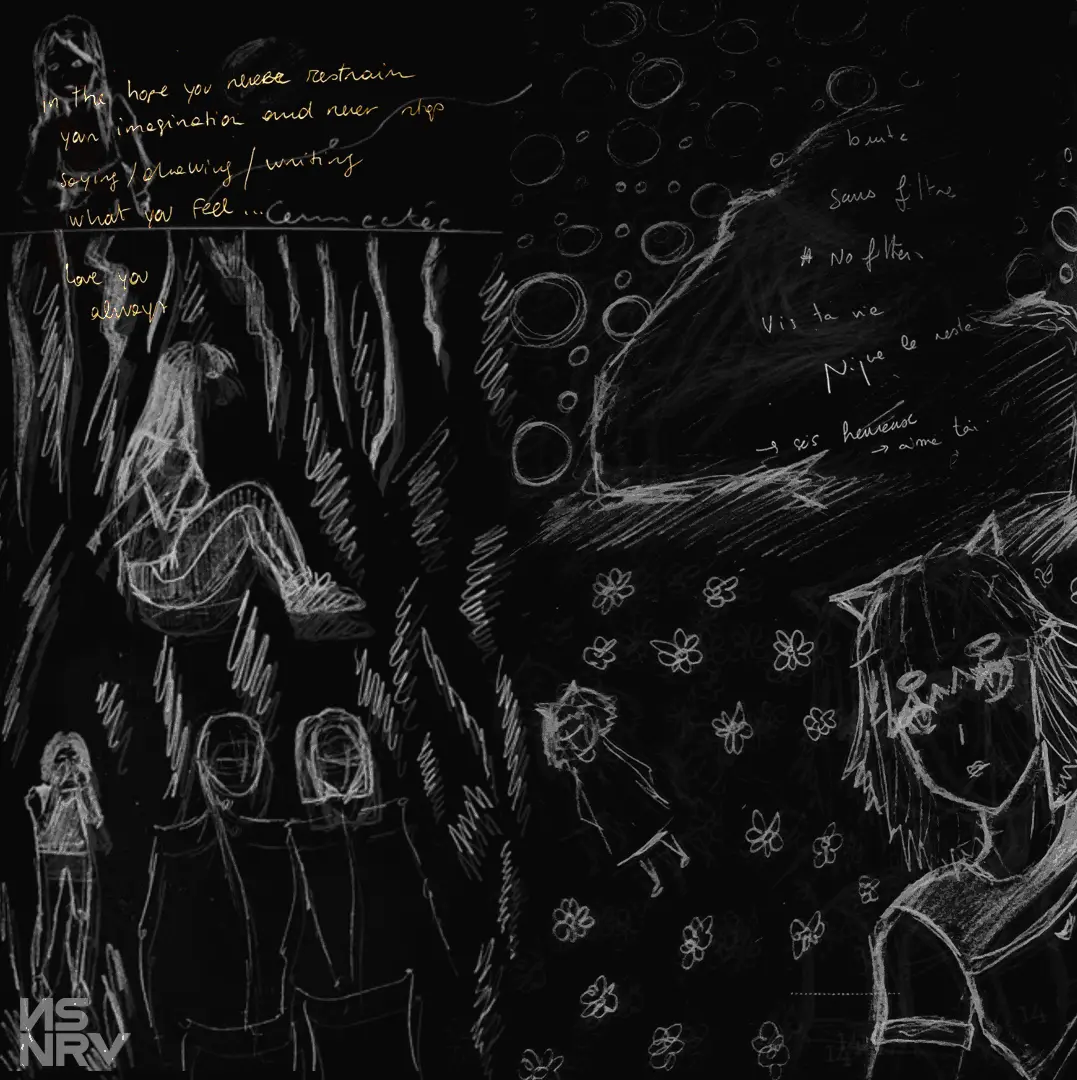 in the hope you never restrain
your imagination and never stop
saying / drawing / writing
what you feel ...
Connectée
love you
always
brute
sans filtre
# No filter
Vis ta vie
Nique le reste
→ sis heureuse
→ aime toi
ИS
NRV